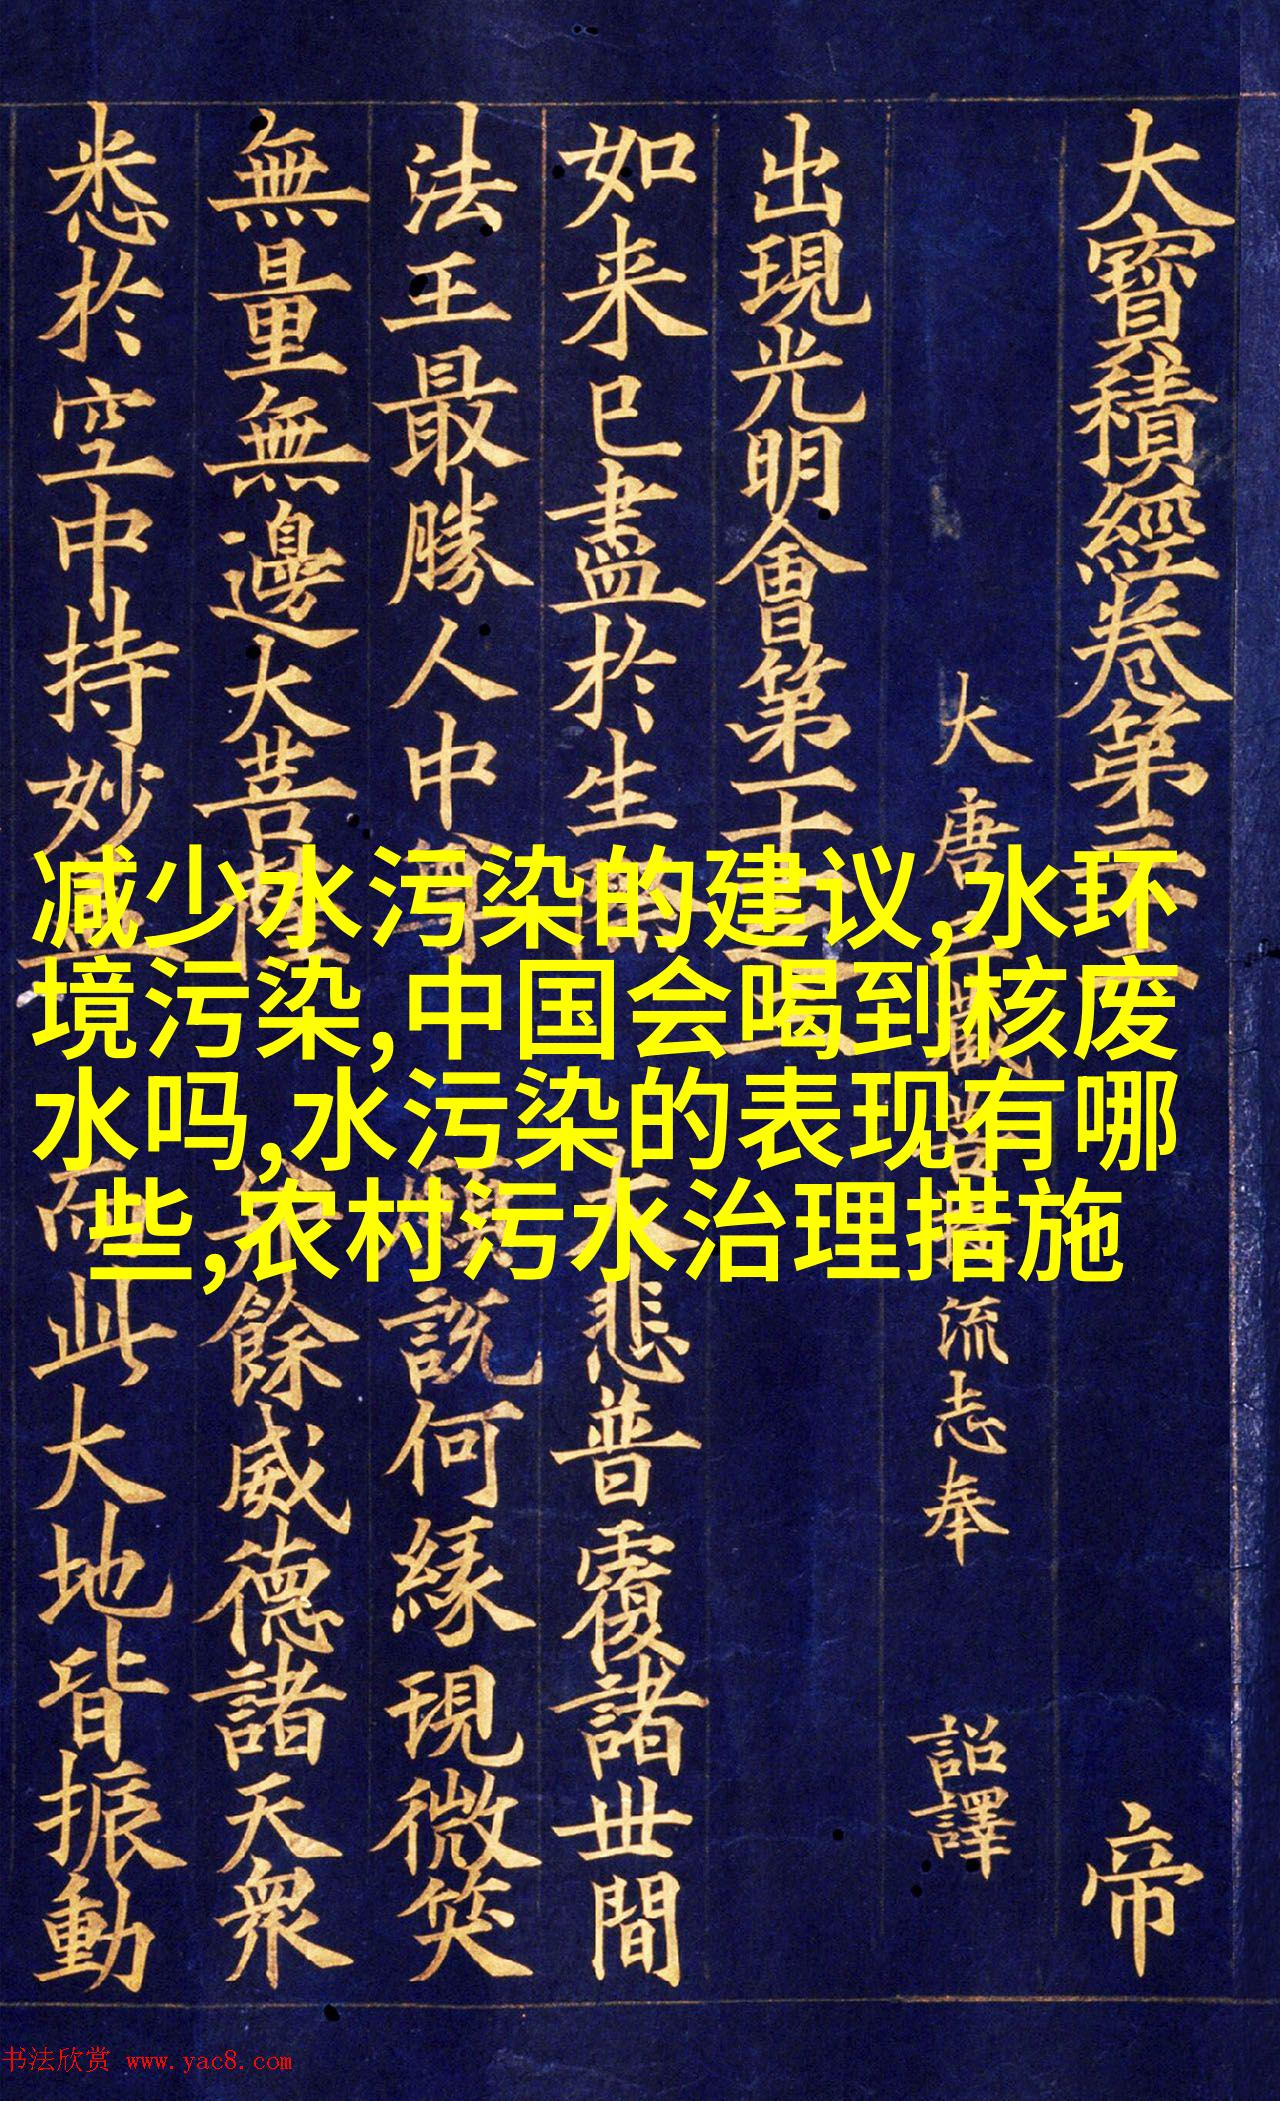 大寶積經卷第 帝
大唐 藏菩提流志奉 詔譯
出現光明會第
如来已盡於生 大悲普覆諸世間
法王最勝人中尊 願説何縁現微笑
無量無邊大菩薩 并餘威德諸天衆
悉於空中持妙蓋 而此大地皆振動
减少水污染的建议,水环
境污染,中国会喝到核废
水吗,水污染的表现有哪
些,农村污水治理措施
书法欣赏 www.yac8.com